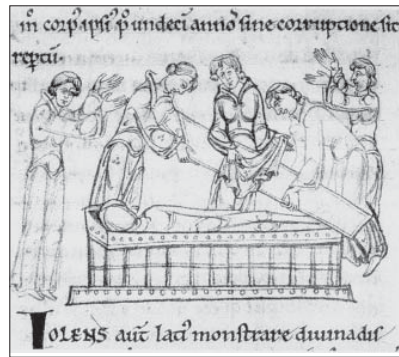 m̄ corp᾽ ipsi᾽ p᾽ undeci annos sine corruptione sit
reptū
OLENS aut̄ lati᾽ monstrare diuina dis